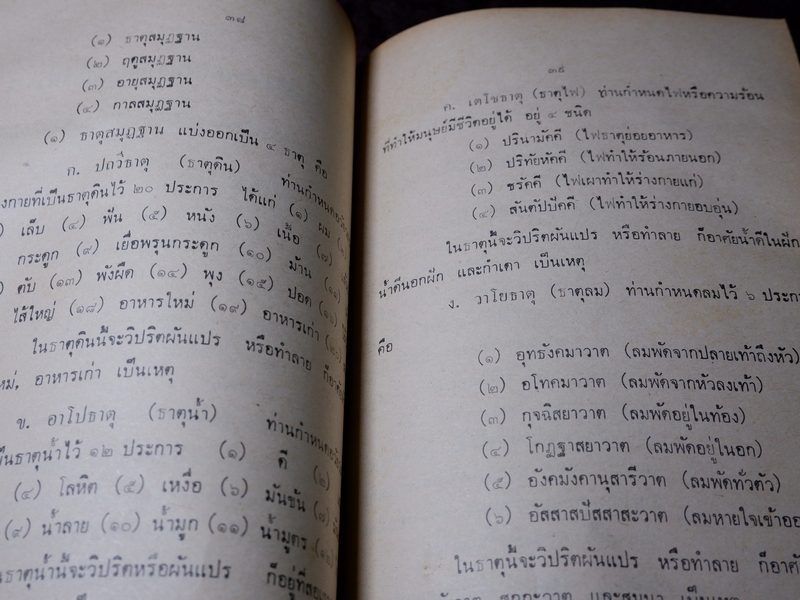 ๓๘
(๑) ธาตุสมุฏฐาน
(๒) ฤดูสมุฏฐาน
(๓) อายุสมุฏฐาน
(๔) กาลสมุฏฐาน
(๑) ธาตุสมุฏฐาน แบ่งออกเป็น ๔ ธาตุ คือ
ก. ปถวีธาตุ (ธาตุดิน) ท่านกำหนด
งกายที่เป็นธาตุดินไว้ ๒๐ ประการ ได้แก่ (๑) ผม
เล็บ (๔) ฟัน (๕) หนัง (๖) เนื้อ (๗)
กระดูก (๙) เยื่อพรุนกระดูก (๑๐) ม้าม (๑๑)
ตับ (๑๓) พังผืด (๑๔) พุง (๑๕) ปอด (๑๖)
ไส้ใหญ่ (๑๘) อาหารใหม่ (๑๙) อาหารเก่า (๒๐)
ในธาตุดินนี้จะวิปริตผันแปร หรือทำลาย ก็อาศัย
หม่, อาหารเก่า เป็นเหตุ
ข. อาโปธาตุ (ธาตุน้ำ) ท่านกำหนด
ป็นธาตุน้ำไว้ ๑๒ ประการ (๑) ดี (๒)
(๔) โลหิต (๕) เหงื่อ (๖) มันข้น (๗)
(๙) น้ำลาย (๑๐) น้ำมูก (๑๑) น้ำมูตร
นธาตุน้ำนี้จะวิปริตหรือผันแปร ก็อยู่ที่สอง
๓๙
ค. เตโชธาตุ (ธาตุไฟ) ท่านกำหนดไฟหรือความร้อน
ที่ทำให้มนุษย์มีชีวิตอยู่ได้ อยู่ ๔ ชนิด
(๑) ปรินามัคคี (ไฟธาตุย่อยอาหาร)
(๒) ปริทัยหัคคี (ไฟทำให้ร้อนภายนอก)
(๓) ชรัคคี (ไฟเผาทำให้ร่างกายแก่)
(๔) สันตัปปัคคี (ไฟทำให้ร่างกายอบอุ่น)
ในธาตุนี้จะวิปริตผันแปร หรือทำลาย ก็อาศัยน้ำดีในฝัก
น้ำดีนอกฝัก และกำเดา เป็นเหตุ
ง. วาโยธาตุ (ธาตุลม) ท่านกำหนดลมไว้ ๖ ประกา
คือ
(๑) อุทธังคมาวาต (ลมพัดจากปลายเท้าถึงหัว)
(๒) อโทคมาวาต (ลมพัดจากหัวลงเท้า)
(๓) กุจฉิสยาวาต (ลมพัดอยู่ในท้อง)
(๔) โกฏฐาสยาวาต (ลมพัดอยู่ในอก)
(๕) อังคมังคานุสารีวาต (ลมพัดทั่วตัว)
(๖) อัสสาสปัสสาสะวาต (ลมหายใจเข้าออ
ในธาตุนี้จะวิปริตผันแปร หรือทำลาย ก็อาศั